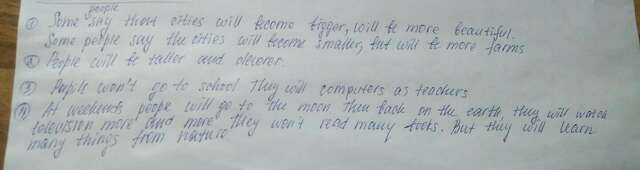 people
① Some say that cities will become bigger, will be more beautiful.
Some people say the cities will become smaller, but will be more farms
② People will be taller and cleverer.
③ Pupils won't go to school They will computers as teachers
④ At weekends people will go to the moon then back on the earth, they will watch
television more and more They won't read many books. But they will learn
many things from nature